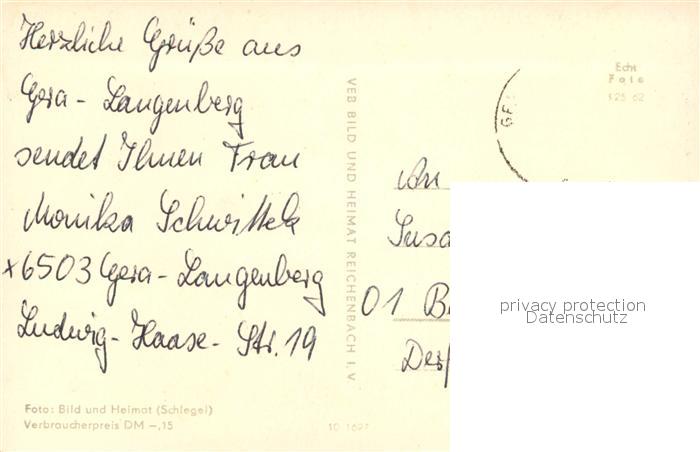 Herzliche Grüße aus
Gera - Langenberg
sendet Ihnen Frau
Monika Schwittek
x 6503 Gera - Langenberg
Ludwig - Haase - Str. 19
Foto: Bild und Heimat (Schlegel)
Verbraucherpreis DM -,15
VEB BILD UND HEIMAT REICHENBACH I. V
10 1697
Echt
Foto
GE
An
01 B
privacy protection
Datenschutz